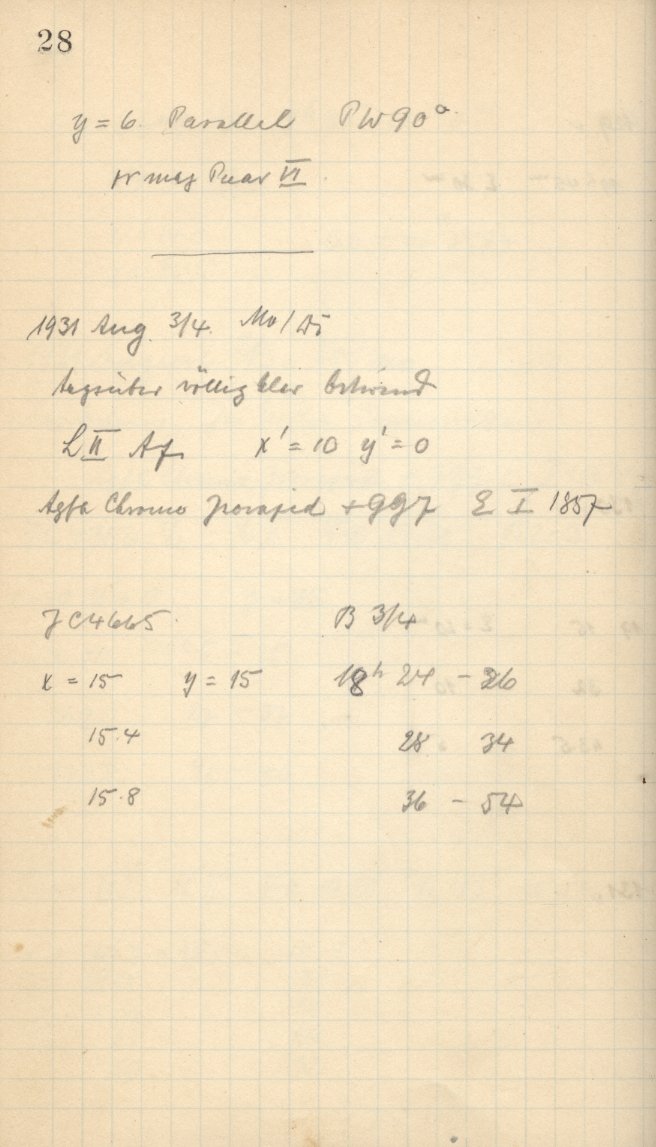 28
y = 6. Parallel PW 90°
1931 Aug. 3/4. Mo/Di
tagsüber völlig klar
L II Af x' = 10 y' = 0
Agfa Chromo 997 E I 1857
JC 4665 B 3/4
x = 15 y = 15 18h 24 - 26
15.4 28 34
15.8 36 - 54